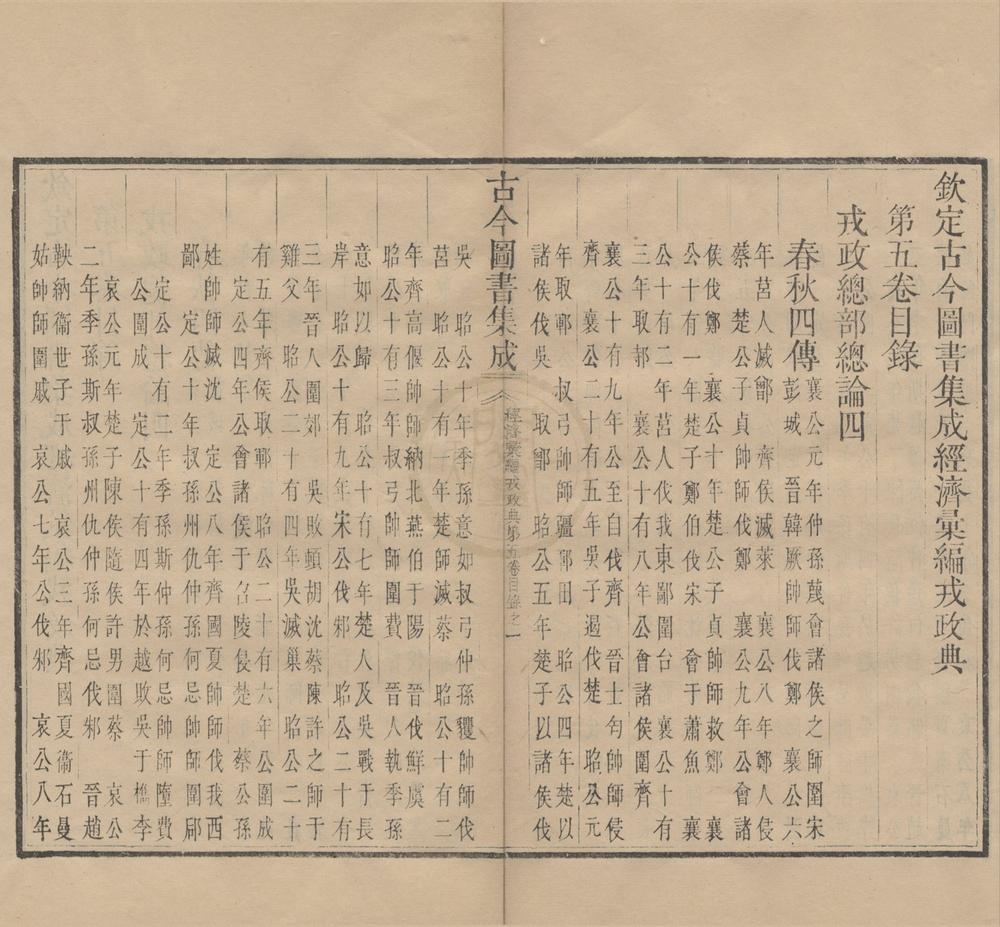 欽定古今圖書集成經濟彙編戎政典
第五卷目錄
戎政總部總論四
春秋四傳
襄公元年仲孫蔑會諸侯之師圍宋
彭城 晉韓厥帥師伐鄭 襄公六
年莒人滅鄫 齊侯滅萊 襄公八年鄭人侵
蔡 楚公子貞帥師伐鄭 襄公九年公會諸
侯伐鄭 襄公十年楚公子貞帥師救鄭 襄
公十有一年楚子鄭伯伐宋 會于蕭魚 襄
公十有二年莒人伐我東鄙圍台 襄公十有
三年取邿 襄公十有八年公會諸侯圍齊
襄公十有九年公至自伐齊 晉士匄帥師侵
齊 襄公二十有五年吳子遏伐楚 昭公元
年取鄆 叔弓帥師疆鄆田 昭公四年楚以
諸侯伐吳 取鄫 昭公五年楚子以諸侯伐
古今圖書集成
經濟彙編戎政典第五卷目錄之一
吳 昭公十年季孫意如叔弓仲孫貜帥師伐
莒 昭公十有一年楚師滅蔡 昭公十有二
年齊高偃帥師納北燕伯于陽 晉伐鮮虞
昭公十有三年叔弓帥師圍費 晉人執季孫
意如以歸 昭公十有七年楚人及吳戰于長
岸 昭公十有九年宋公伐邾 昭公二十有
三年晉人圍郊 吳敗頓胡沈蔡陳許之師于
雞父 昭公二十有四年吳滅巢 昭公二十
有五年齊侯取鄆 昭公二十有六年公圍成
定公四年公會諸侯于召陵侵楚 蔡公孫
姓帥師滅沈 定公八年齊國夏帥師伐我西
鄙 定公十年叔孫州仇仲孫何忌帥師圍郈
定公十有二年季孫斯仲孫何忌帥師墮費
公圍成 定公十有四年於越敗吳于檇李
哀公元年楚子陳侯隨侯許男圍蔡 哀公
二年季孫斯叔孫州仇仲孫何忌伐邾 晉趙
鞅納衛世子于戚 哀公三年齊國夏衛石曼
姑帥師圍戚 哀公七年公伐邾 哀公八年